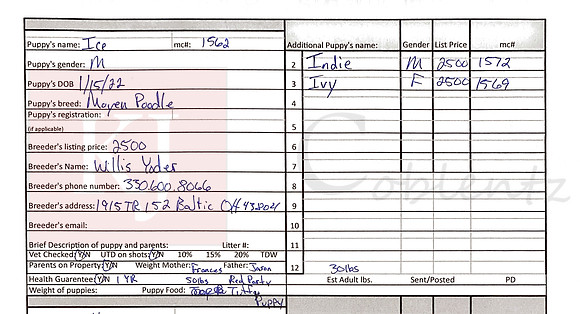 Puppy's name: Ice mc#: 1562 Additional Puppy's name: Gender List Price mc#
Puppy's gender: M 2 Indie M 2500 1572
Puppy's DOB 1/15/22 3 Ivy F 2500 1569
Puppy's breed: Moyen Poodle 4
Puppy's registration:
(if applicable) 5
Breeder's listing price: 2500 6
Breeder's Name: Willis Yoder 7
Breeder's phone number: 330.600.8066 8
Breeder's address: 1915 TR 152 Baltic OH 43804 9
Breeder's email: 10
Brief Description of puppy and parents: Litter #: 11
Vet Checked: Y/N UTD on shots: Y/N 10% 15% 20% TDW
Parents on Property: Y/N Weight Mother: Frances Father: Jason 12 30lbs
Health Guarantee: Y/N 1 YR 50lbs Red Party Est Adult lbs. Sent/Posted PD
Weight of puppies: Puppy Food:
Puppy
Coblentz